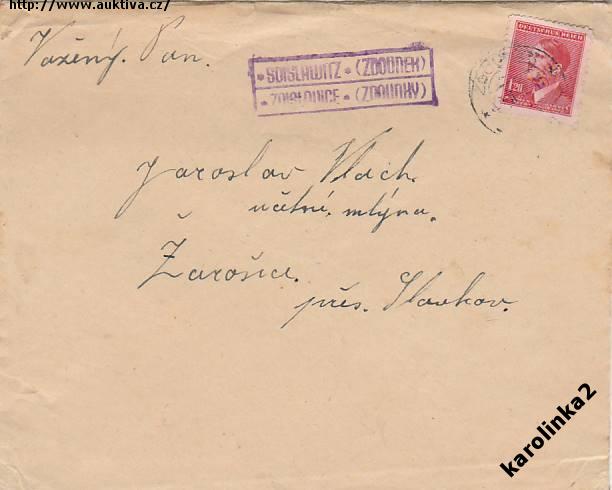 http://www.auktiva.cz/
Vážený Pan.
• SDISLAWITZ • (ZDOUNEK)
• ZDISLAVICE • (ZDOUNKY)
DEUTSCHES REICH
1.20
Jaroslav Vlach.
účetní. mlýna.
Žarošice.
přes. Slavkov.
karolinka2